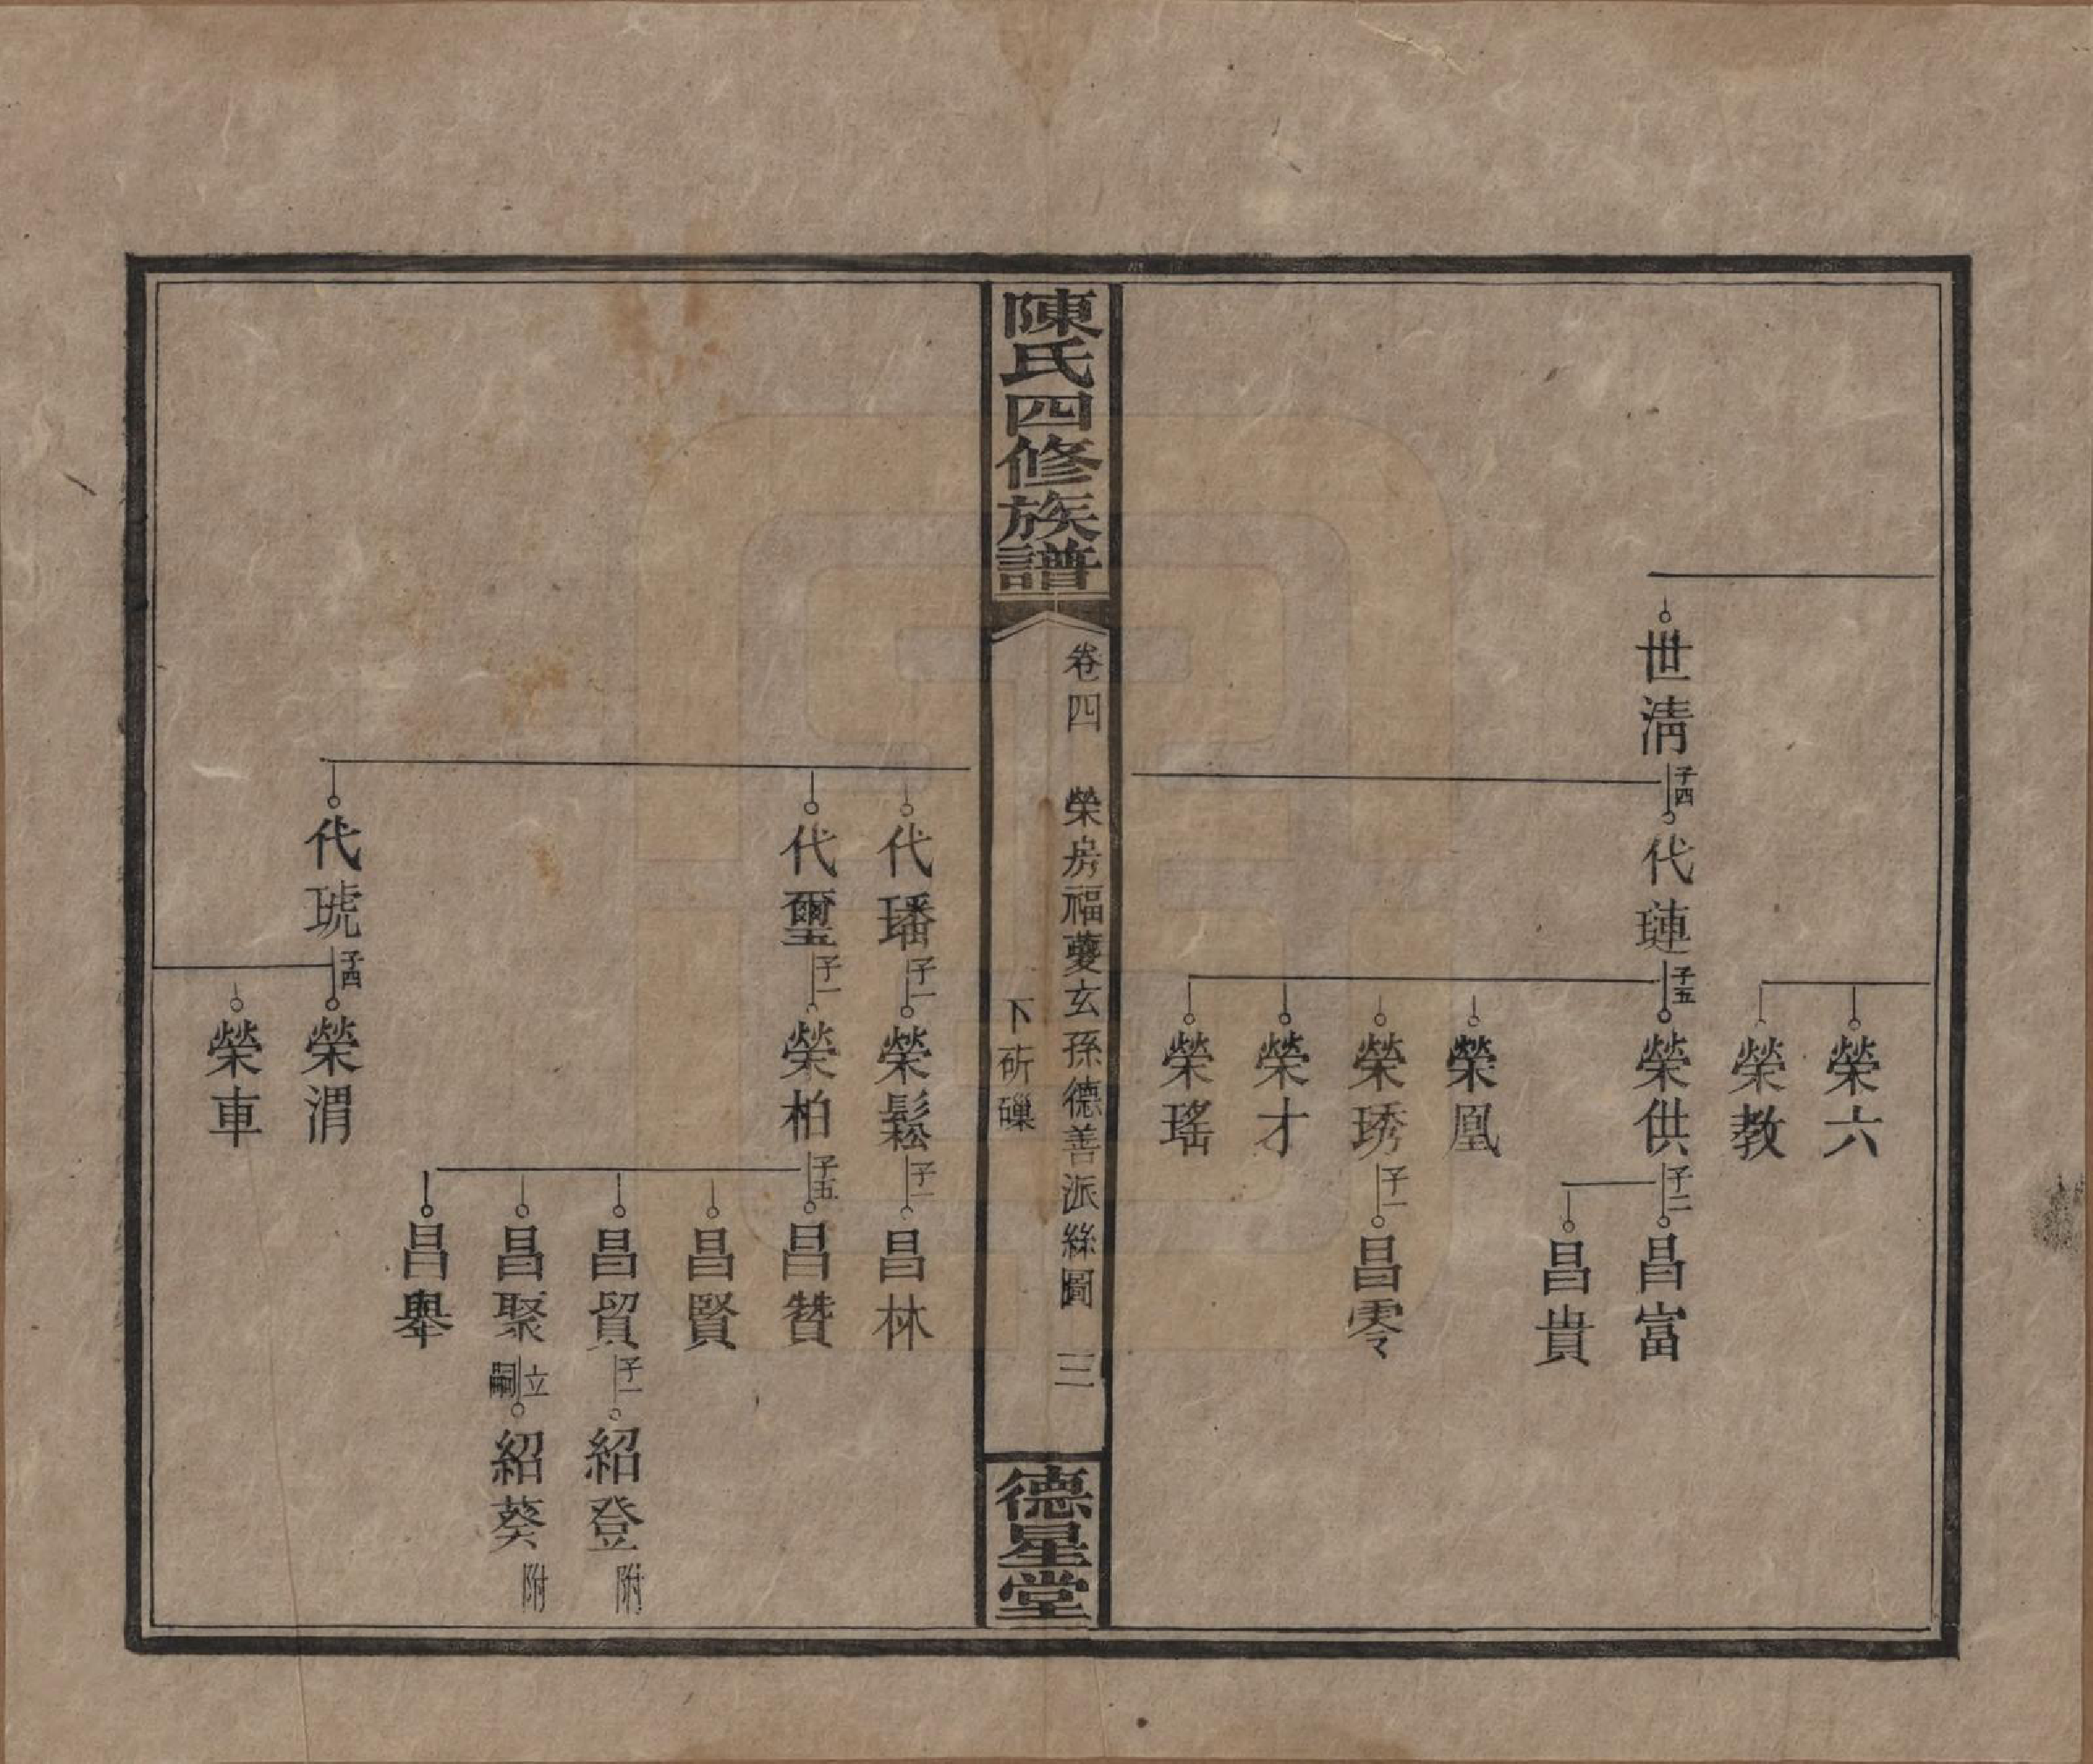 榮六
榮教
世清 子四 代璉 子五 榮供 子二 昌富
昌貴
榮凰
榮琇 子一 昌零
榮才
榮瑤
陳氏四修族譜
卷四 榮房福夔玄孫德善派絲圖 三
下斫磔
德星堂
代璠 子一 榮鬆 子一 昌林
代璽 子一 榮柏 子五 昌贊
昌賢
昌貿 子一 紹登 附
昌聚 立嗣 紹葵 附
昌舉
代琥 子四 榮渭
榮車